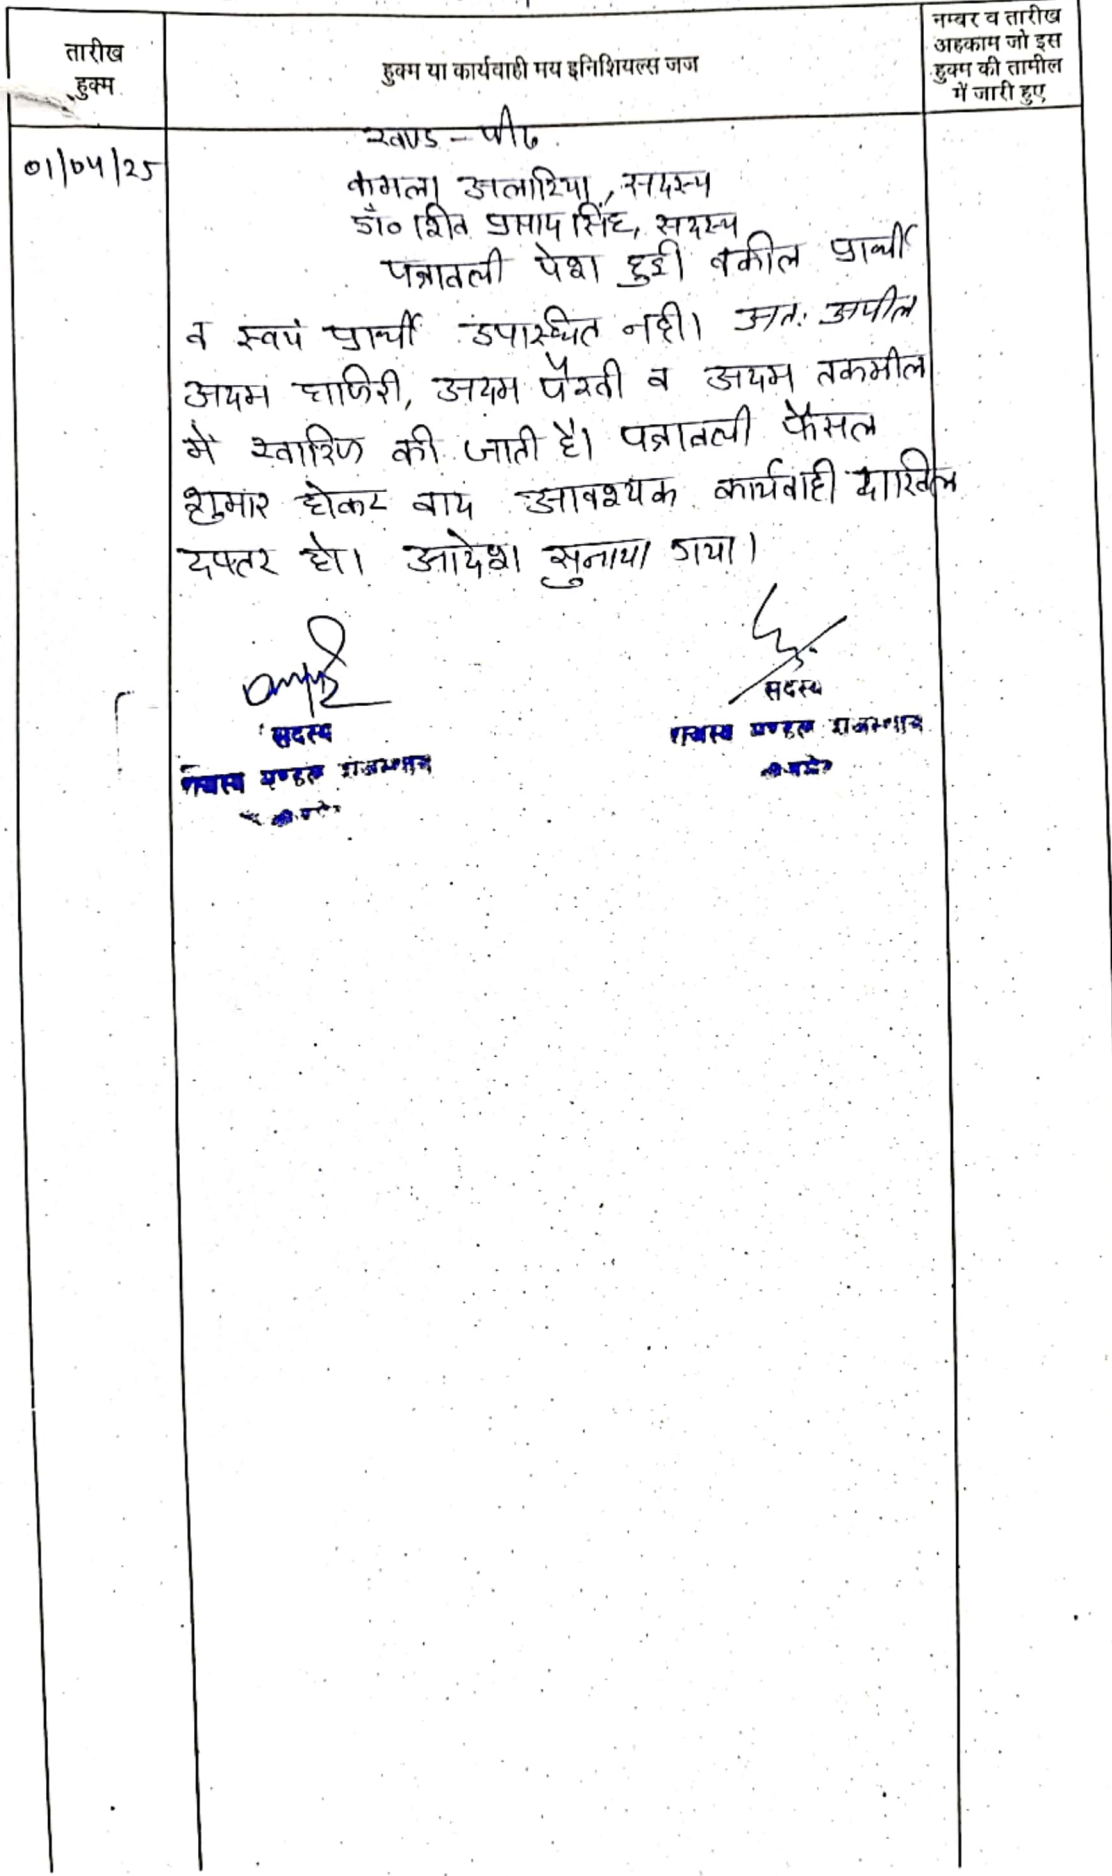 तारीख
हुक्म
हुक्म या कार्यवाही मय इनिशियल्स जज
नम्बर व तारीख
अहकाम जो इस
हुक्म की तामील
में जारी हुए
खण्ड - पीठ
01/04/25
कमला अलारिया, सदस्य
डॉ० शिव प्रसाद सिंह, सदस्य
पत्रावली पेश हुई। वकील प्रार्थी
व स्वयं प्रार्थी उपस्थित नही। अतः अपील
अदम हाजिरी, अदम पैरवी व अदम तकमील
में खारिज की जाती है। पत्रावली फैसल
शुमार होकर बाद आवश्यक कार्यवाही दाखिल
दफ्तर हो। आदेश सुनाया गया।
सदस्य
सदस्य
राजस्व मण्डल राजस्थान
राजस्व मण्डल राजस्थान